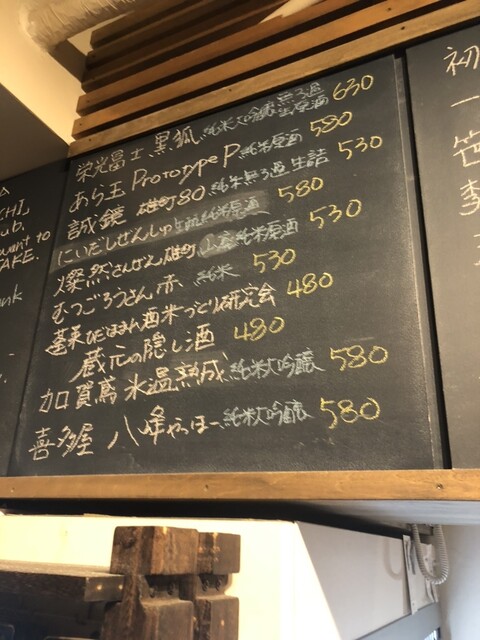 栄光冨士 黒狐 純米大吟醸 無ろ過生原酒 630
あら玉 Prototype P 純米原酒 580
誠鏡 雄町80 純米無ろ過生詰 530
にいだしぜんしゅ 純米原酒 580
燦然 さんぜん 雄町 山廃純米原酒 530
むつごろうさん 赤、純米 530
蓬莱 ひだほまれ 酒米づくり研究会 480
蔵元の隠し酒 480
加賀鳶 氷温熟成 純米大吟醸 580
喜多屋 八峰やっほー 純米大吟醸 580
CHI,
ub.
want to
AKE.
nk
初
一
笹
李